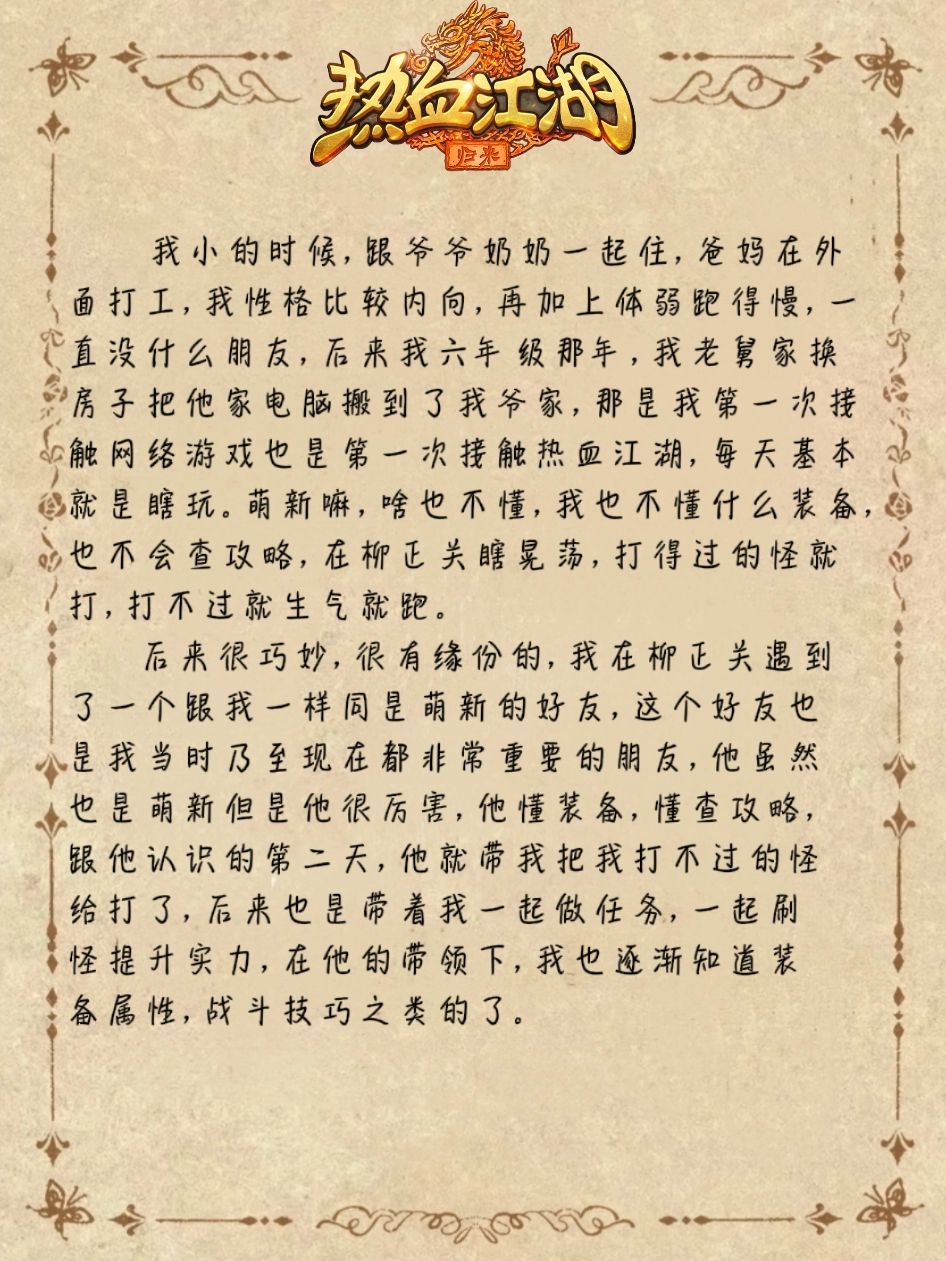 热血江湖
归来
我小的时候,跟爷爷奶奶一起住,爸妈在外
面打工,我性格比较内向,再加上体弱跑得慢,一
直没什么朋友,后来我六年级那年,我老舅家换
房子把他家电脑搬到了我爷家,那是我第一次接
触网络游戏也是第一次接触热血江湖,每天基本
就是瞎玩。萌新嘛,啥也不懂,我也不懂什么装备,
也不会查攻略,在柳正关瞎晃荡,打得过的怪就
打,打不过就生气就跑。
后来很巧妙,很有缘份的,我在柳正关遇到
了一个跟我一样同是萌新的好友,这个好友也
是我当时乃至现在都非常重要的朋友,他虽然
也是萌新但是他很厉害,他懂装备,懂查攻略,
跟他认识的第二天,他就带我把我打不过的怪
给打了,后来也是带着我一起做任务,一起刷
怪提升实力,在他的带领下,我也逐渐知道装
备属性,战斗技巧之类的了。